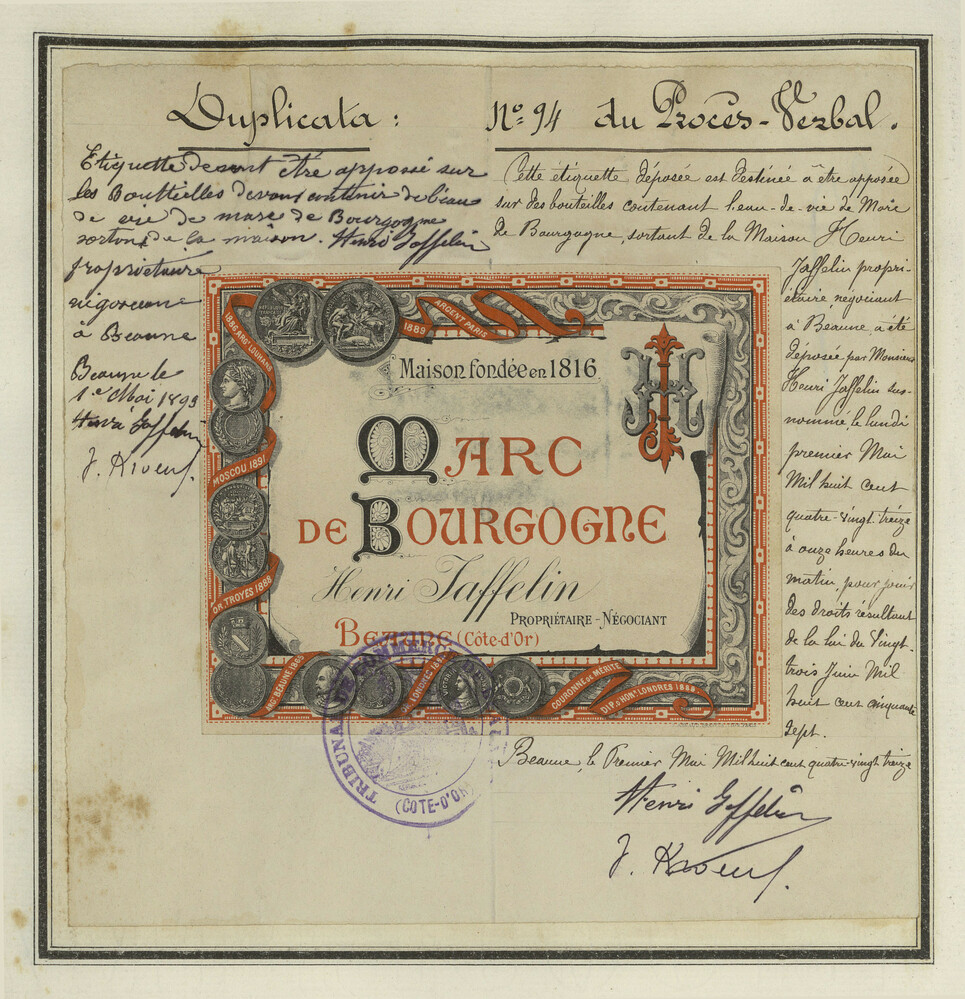 Duplicata :
Etiquette devant être apposé sur
les Bouttielles devant contenir de l'eau
de vie de marc de Bourgogne
sortant de la maison. Henri Jaffelin
propriétaire
négociant
à Beaune
Beaune le
1er Mai 1893
Henri Jaffelin
No 94 du Procès-Verbal.
Cette étiquette déposée est destinée à être apposée
sur des bouteilles contenant l'eau-de-vie de Marc
de Bourgogne, sortant de la Maison Henri
Jaffelin propri-
étaire négociant
à Beaune a été
déposée par Monsieur
Henri Jaffelin sus-
nommé, le lundi
premier Mai
Mil huit cent
quatre-vingt-treize
à onze heures du
matin, pour jouir
des droits résultant
de la loi du Vingt-
trois Juin Mil
huit cent cinquante
sept.
Beaune, le Premier Mai Mil huit cent quatre-vingt treize
Henri Jaffelin
1886 ARGt LOUHANS
1889 ARGENT PARIS
Maison fondée en 1816
H J
MOSCOU 1891
MARC
DE BOURGOGNE
OR. TROYES 1888
Henri Jaffelin
PROPRIÉTAIRE - NÉGOCIANT
BEAUNE (Côte-d'Or)
COURONNE DE MÉRITE
DIP. d'HONr LONDRES 1888
TRIBUNAL DE COMMERCE DE BEAUNE
(COTE-D'OR)